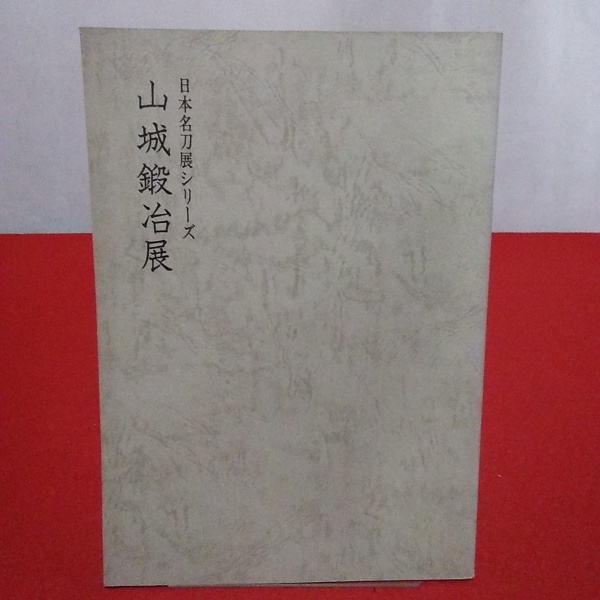 日本名刀展シリーズ
山城鍛冶展